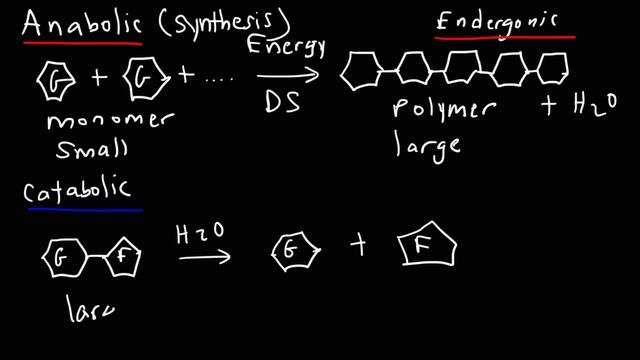 Anabolic (synthesis)
Endergonic
G + G + .... Energy
DS
monomer
small
polymer + H2O
large
Catabolic
G F H2O G + F
larg